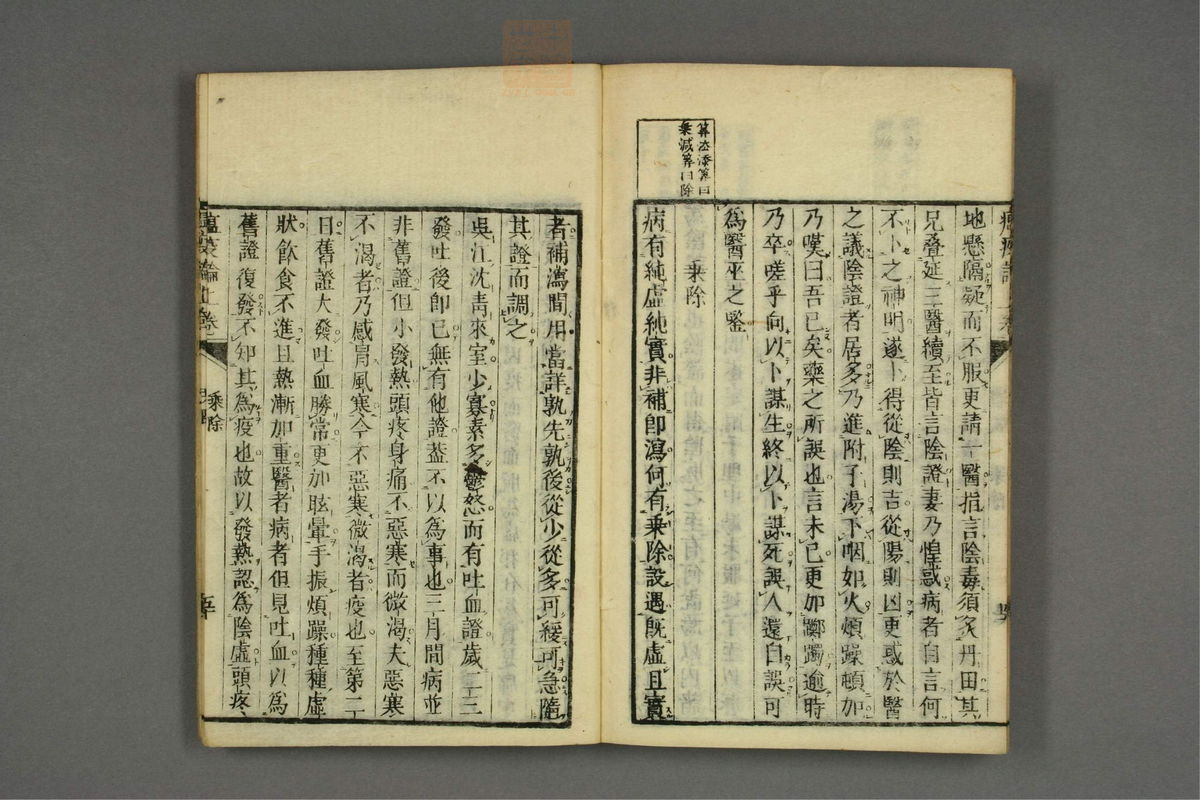 地懸隔疑而不服更請一醫指言陰毒須灸丹田其
兄叠延三醫續至皆言陰證妻乃惶惑病者自言何
不卜之神明遂卜得從陰則吉從陽則凶更惑於醫
之議陰證者居多乃進附子湯下咽如火煩躁頓加
乃嘆曰吾已矣藥之所誤也言未已更加躑躅逾時
乃卒嗟乎向以卜謀生終以卜謀死誤人還自誤可
為醫巫之鑒
算法添算曰
乘減算曰除
乘除
病有純虛純實非補卽瀉何有乘除設遇旣虛且實
者補瀉間用當詳孰先孰後從少從多可緩可急隨
其證而調之
吳江沈靑來室少寡素多鬱怒而有吐血證歲二三
發吐後卽已無有他證葢不以為事也三月間病並
非舊證但小發熱頭疼身痛不惡寒而微渴夫惡寒
不渴者乃感冐風寒今不惡寒微渴者疫也至第二
日舊證大發吐血勝常更加眩暈手振煩躁種種虛
狀飲食不進且熱漸加重醫者病者但見吐血以為
舊證復發不知其為疫也故以發熱認為陰虛頭疼
乘除